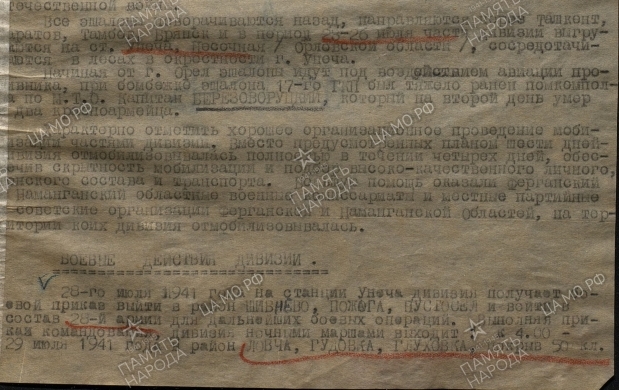 чественной войны.
Все эшелоны поворачиваются назад, направляются через Ташкент,
Саратов, Тамбов, Брянск и в период 23-26 июля части дивизии выгру-
жаются на ст. Унеча, Песочная /Орловской области/, сосредотачи-
ваются в лесах в окрестности г. Унеча.
Начиная от г. Орел эшелоны идут под воздействием авиации про-
тивника, при бомбежке эшелона 17-го ГАП был тяжело ранен
по капитан который на второй день умер
два
отметить хорошее организационное проведение моби-
лизации частями дивизии. Вместо предусмотренных планом шести дней
дивизия отмобилизовалась полностью в течении четырех дней, обес-
скрытность мобилизации и высоко-качественного личного,
состава и транспорта. помощь оказали Ферганский
Наманганский областные военные и местные партийные
советские организации Ферганской и Наманганской Областей, на тер-
ритории коих дивизия отмобилизовывалась.
БОЕВЫЕ ДЕЙСТВИЯ ДИВИЗИИ.
28-го июля 1941 года на станции Унеча дивизия получает
боевой приказ выйти в район ПОЖОГА, и войти в
состав 28-й армии для дальнейших боевых операций. Выполняя при-
каз командования дивизия ночными маршами выходит к 4.00
29 июля 1941 года в район ГУДОВКА, ГЛУХОВКА, 50 кл.
ЦА МО.РФ
ПАМЯТЬ НАРОДА